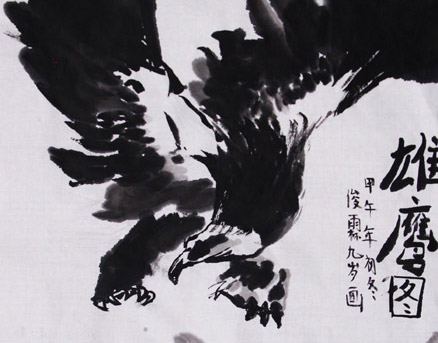 雄鹰图
甲午年初冬
俊霖九岁画